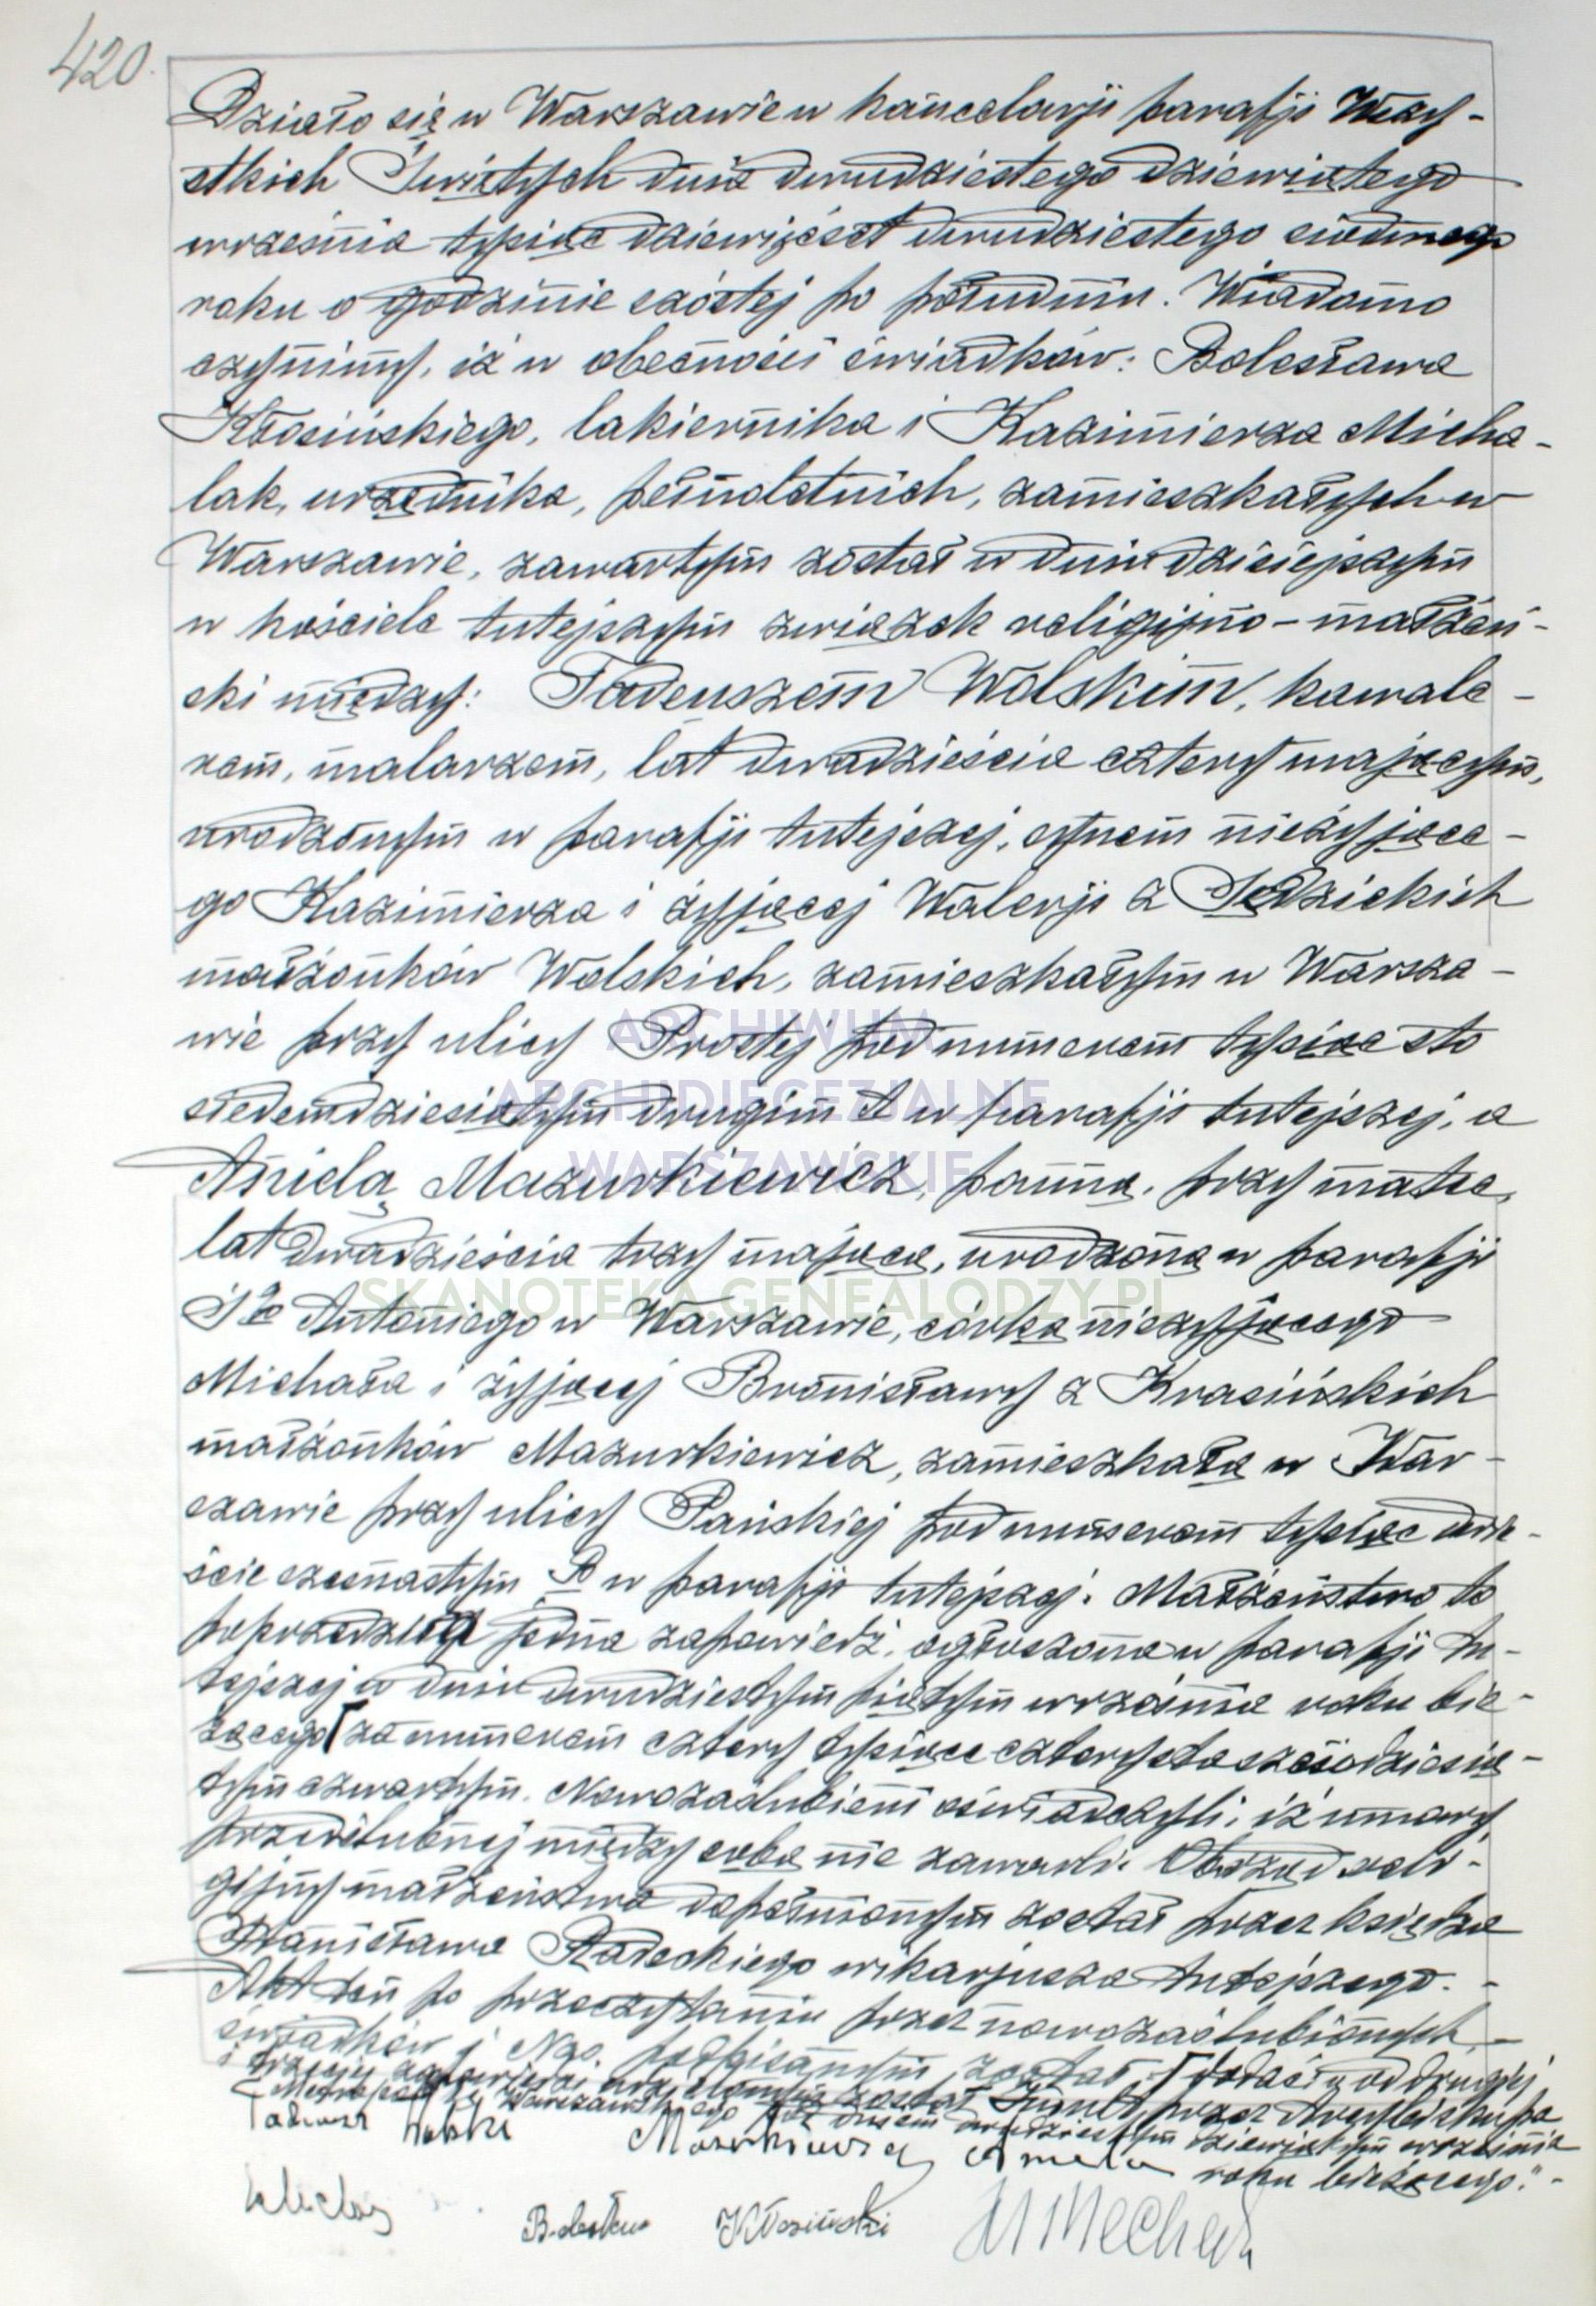 420.
Działo się w Warszawie w kancelarji parafji Wszy-
stkich Świętych dnia dwudziestego dziewiątego
września tysiąc dziewięćset dwudziestego siódmego
roku o godzinie szóstej po południu. Wiadomo
czynimy, iż w obecności świadków: Bolesława
Kłosińskiego, lakiernika i Kazimierza Micha-
lak, urzędnika, pełnoletnich, zamieszkałych w
Warszawie, zawartym został w dniu dzisiejszym
w kościele tutejszym związek religijno-małżeń-
ski między: Tadeuszem Wolskim, kawale-
rem, malarzem, lat dwadzieścia cztery mającym,
urodzonym w parafji tutejszej, synem nieżyjące-
go Kazimierza i żyjącej Walerji z Sędzickich
małżonków Wolskich, zamieszkałym w Warsza-
wie przy ulicy Prostej pod numerem tysiąc sto
siedemdziesiątym drugim A w parafji tutejszej, a
Anielą Mazurkiewicz, panną, przy matce,
lat dwadzieścia trzy mającą, urodzoną w parafji
Śgo Antoniego w Warszawie, córką nieżyjącego
Michała i żyjącej Bronisławy z Krasińskich
małżonków Mazurkiewicz, zamieszkałą w War-
szawie przy ulicy Pańskiej pod numerem tysiąc dwie-
ście szesnastym B w parafji tutejszej. Małżeństwo to
poprzedziła jedna zapowiedź, ogłoszona w parafji tu-
tejszej w dniu dwudziestym piątym września roku bie-
żącego za numerem cztery tysiące czterysta sześćdziesią-
tym czwartym. Nowozaślubieni oświadczyli, iż umowy
przedślubnej między sobą nie zawarli. Obrząd reli-
gijny małżeństwa dopełnionym został przez księdza
Stanisława Radeckiego wikarjusza tutejszego. -
Akt ten po przeczytaniu przez nowozaślubionych, -
świadków i Nas podpisanym został. "dodać: od drugiej
i trzeciej zapowiedzi udzielonym został indult przez Arcybiskupa
Metropolitę Warszawskiego pod dniem dwudziestym dziewiątym września
roku bieżącego." -
Tadeusz Wolski
Mazurkiewicz Aniela
Bolesław Kłosiński